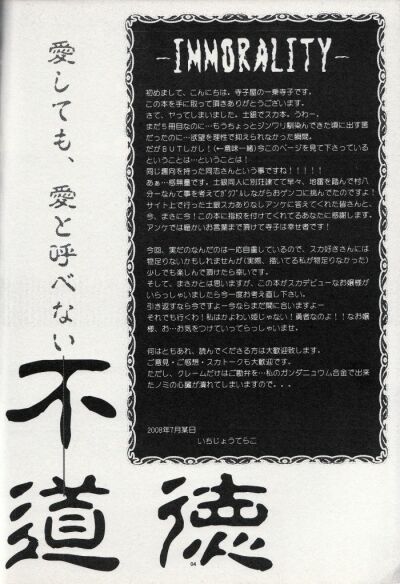 -IMMORALITY-
初めまして、こんにちは。寺子屋の一乗寺子です。
この本を手に取って頂きありがとうございます。
さて、やってしまいました。土銀でスカ本。うわー。
まだ5冊目なのに…もうちょっとジンワリ馴染んできた頃に出す筈
だったのに…欲望を理性で抑えられなかった瞬間。
だがBUTしかし！(←意味一緒)今このページを見て下さっている
ということは…ということは！
同じ趣向を持った同志さんという事ですね！！！！！
あぁ…感無量です。土銀同人に別荘建てて早々、地雷を踏んで村八
分…なんて事を考えてガクブルしながらおゲンコに挑んでたのですよ！
サイト上で行った土銀スカありなしアンケに答えてくれた皆さんと、
今、まさに今！この本に指紋を付けてくれてるあなたに感謝します。
アンケでは暖かいお言葉まで頂けて寺子は幸せ者です！
今回、実だのなんだのは一応自重しているので、スカ好きさんには
物足りないかもしれませんが(実際、描いてる私が物足りなかった)
少しでも楽しんで頂けたら幸いです。
そして、まさかとは思いますが、この本がスカデビューなお嬢様が
いらっしゃいましたら今一度お考え直し下さい。
引き返すなら今ですよー今ならまだ間に合いますよー
それでも行くわ！私はかよわい姫じゃない！勇者なのよ！！なお嬢
様、お…お気をつけていってらっしゃいませ。
何はともあれ、読んでくださる方は大歓迎致します。
ご意見・ご感想・スカトークも大歓迎です。
ただし、クレームだけはご勘弁を…私のガンダニュウム合金で出来
たノミの心臓が潰れてしまいますので。．．
2008年7月某日
いちじょうてらこ
愛しても、愛と呼べない
不道徳
04